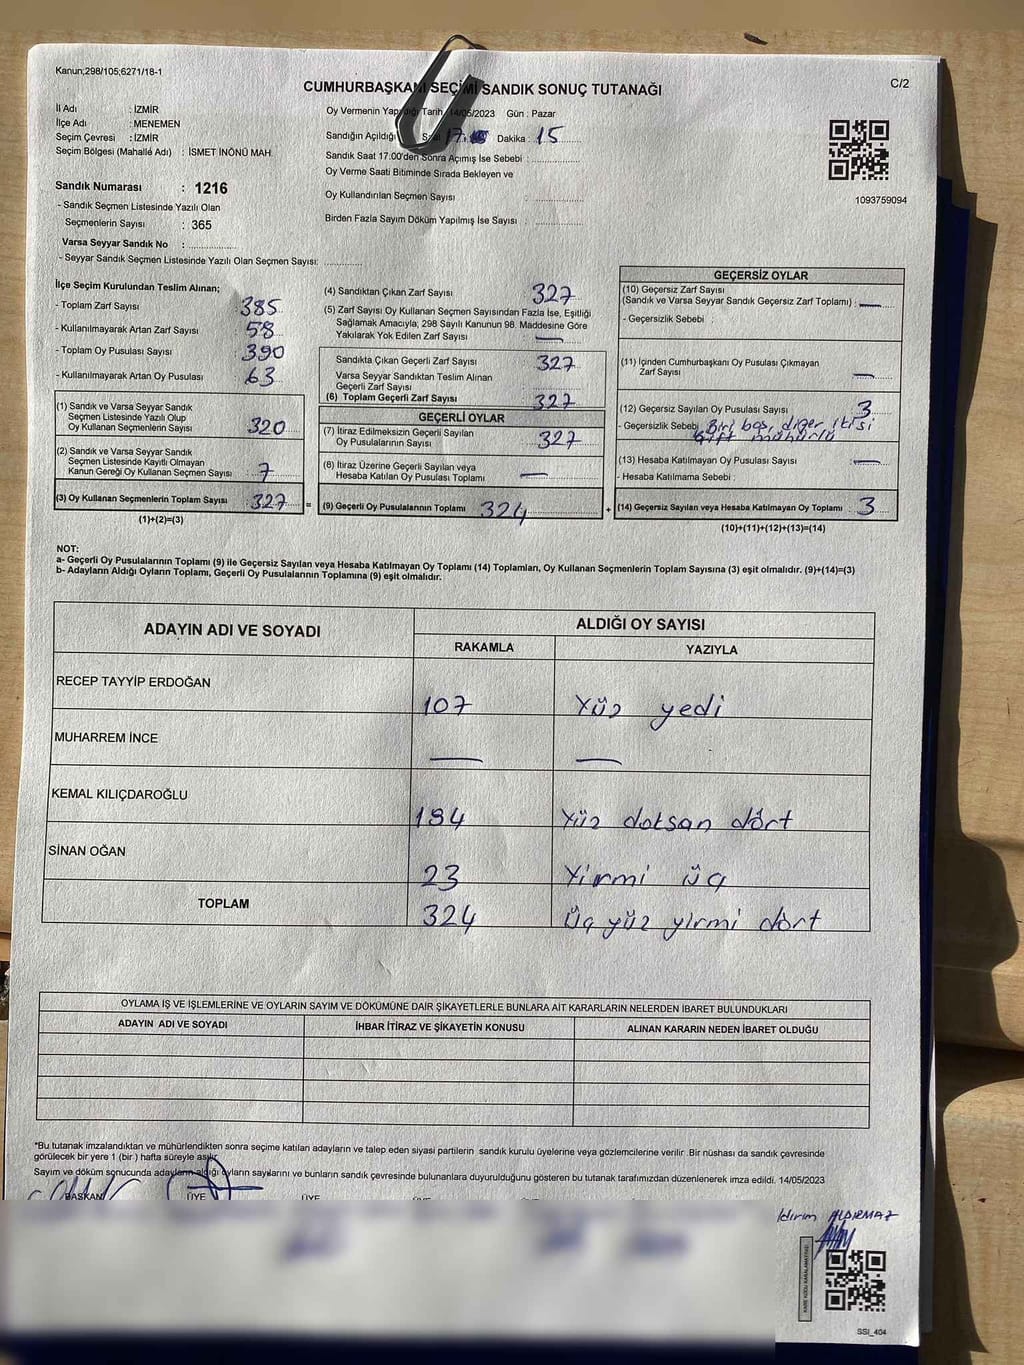 Kanun;298/105;6271/18-1
C/2
CUMHURBAŞKANI SEÇİMİ SANDIK SONUÇ TUTANAĞI
İl Adı : İZMİR
İlçe Adı : MENEMEN
Seçim Çevresi : İZMİR
Seçim Bölgesi (Mahalle Adı) : İSMET İNÖNÜ MAH.
Oy Vermenin Yapıldığı Tarih 14/05/2023 Gün : Pazar
Sandığın Açıldığı Saat 17 Dakika : 15
Sandık Saat 17:00'den Sonra Açımış İse Sebebi :
Oy Verme Saati Bitiminde Sırada Bekleyen ve
Oy Kullandırılan Seçmen Sayısı :
Birden Fazla Sayım Döküm Yapılmış İse Sayısı :
1093759094
Sandık Numarası : 1216
- Sandık Seçmen Listesinde Yazılı Olan
Seçmenlerin Sayısı : 365
Varsa Seyyar Sandık No :
- Seyyar Sandık Seçmen Listesinde Yazılı Olan Seçmen Sayısı:
İlçe Seçim Kurulundan Teslim Alınan;
- Toplam Zarf Sayısı : 385
- Kullanılmayarak Artan Zarf Sayısı : 58
- Toplam Oy Pusulası Sayısı : 390
- Kullanılmayarak Artan Oy Pusulası : 63
(1) Sandık ve Varsa Seyyar Sandık
Seçmen Listesinde Yazılı Olup
Oy Kullanan Seçmenlerin Sayısı : 320
(2) Sandık ve Varsa Seyyar Sandık
Seçmen Listesinde Kayıtlı Olmayan
Kanun Gereği Oy Kullanan Seçmen Sayısı : 7
(3) Oy Kullanan Seçmenlerin Toplam Sayısı : 327 =
(1)+(2)=(3)
(4) Sandıktan Çıkan Zarf Sayısı : 327
(5) Zarf Sayısı Oy Kullanan Seçmen Sayısından Fazla İse, Eşitliği
Sağlamak Amacıyla; 298 Sayılı Kanunun 98. Maddesine Göre
Yakılarak Yok Edilen Zarf Sayısı : —
Sandıkta Çıkan Geçerli Zarf Sayısı : 327
Varsa Seyyar Sandıktan Teslim Alınan
Geçerli Zarf Sayısı :
(6) Toplam Geçerli Zarf Sayısı : 327
GEÇERLİ OYLAR
(7) İtiraz Edilmeksizin Geçerli Sayılan
Oy Pusulalarının Sayısı : 327
(8) İtiraz Üzerine Geçerli Sayılan veya
Hesaba Katılan Oy Pusulası Toplamı : —
(9) Geçerli Oy Pusulalarının Toplamı : 324 +
GEÇERSİZ OYLAR
(10) Geçersiz Zarf Sayısı
(Sandık ve Varsa Seyyar Sandık Geçersiz Zarf Toplamı) : —
- Geçersizlik Sebebi :
(11) İçinden Cumhurbaşkanı Oy Pusulası Çıkmayan
Zarf Sayısı : —
(12) Geçersiz Sayılan Oy Pusulası Sayısı : 3
- Geçersizlik Sebebi : Biri boş, diğer ikisi
çift mühürlü
(13) Hesaba Katılmayan Oy Pusulası Sayısı : —
- Hesaba Katılmama Sebebi :
(14) Geçersiz Sayılan veya Hesaba Katılmayan Oy Toplamı : 3
(10)+(11)+(12)+(13)=(14)
NOT:
a- Geçerli Oy Pusulalarının Toplamı (9) ile Geçersiz Sayılan veya Hesaba Katılmayan Oy Toplamı (14) Toplamları, Oy Kullanan Seçmenlerin Toplam Sayısına (3) eşit olmalıdır. (9)+(14)=(3)
b- Adayların Aldığı Oyların Toplamı, Geçerli Oy Pusulalarının Toplamına (9) eşit olmalıdır.
ADAYIN ADI VE SOYADI ALDIĞI OY SAYISI
RAKAMLA YAZIYLA
RECEP TAYYİP ERDOĞAN 107 Yüz yedi
MUHARREM İNCE — —
KEMAL KILIÇDAROĞLU 194 Yüz doksan dört
SİNAN OĞAN 23 Yirmi üç
TOPLAM 324 Üç yüz yirmi dört
OYLAMA İŞ VE İŞLEMLERİNE VE OYLARIN SAYIM VE DÖKÜMÜNE DAİR ŞİKAYETLERLE BUNLARA AİT KARARLARIN NELERDEN İBARET BULUNDUKLARI
ADAYIN ADI VE SOYADI İHBAR İTİRAZ VE ŞİKAYETİN KONUSU ALINAN KARARIN NEDEN İBARET OLDUĞU
*Bu tutanak imzalandıktan ve mühürlendikten sonra seçime katılan adayların ve talep eden siyasi partilerin sandık kurulu üyelerine veya gözlemcilerine verilir. Bir nüshası da sandık çevresinde
görülecek bir yere 1 (bir ) hafta süreyle asılır.
Sayım ve döküm sonucunda adayların aldığı oyların sayılarını ve bunların sandık çevresinde bulunanlara duyurulduğunu gösteren bu tutanak tarafımızdan düzenlenerek imza edildi. 14/05/2023
BAŞKAN ÜYE ÜYE
ldırım ALDIRMAZ
SSI_404